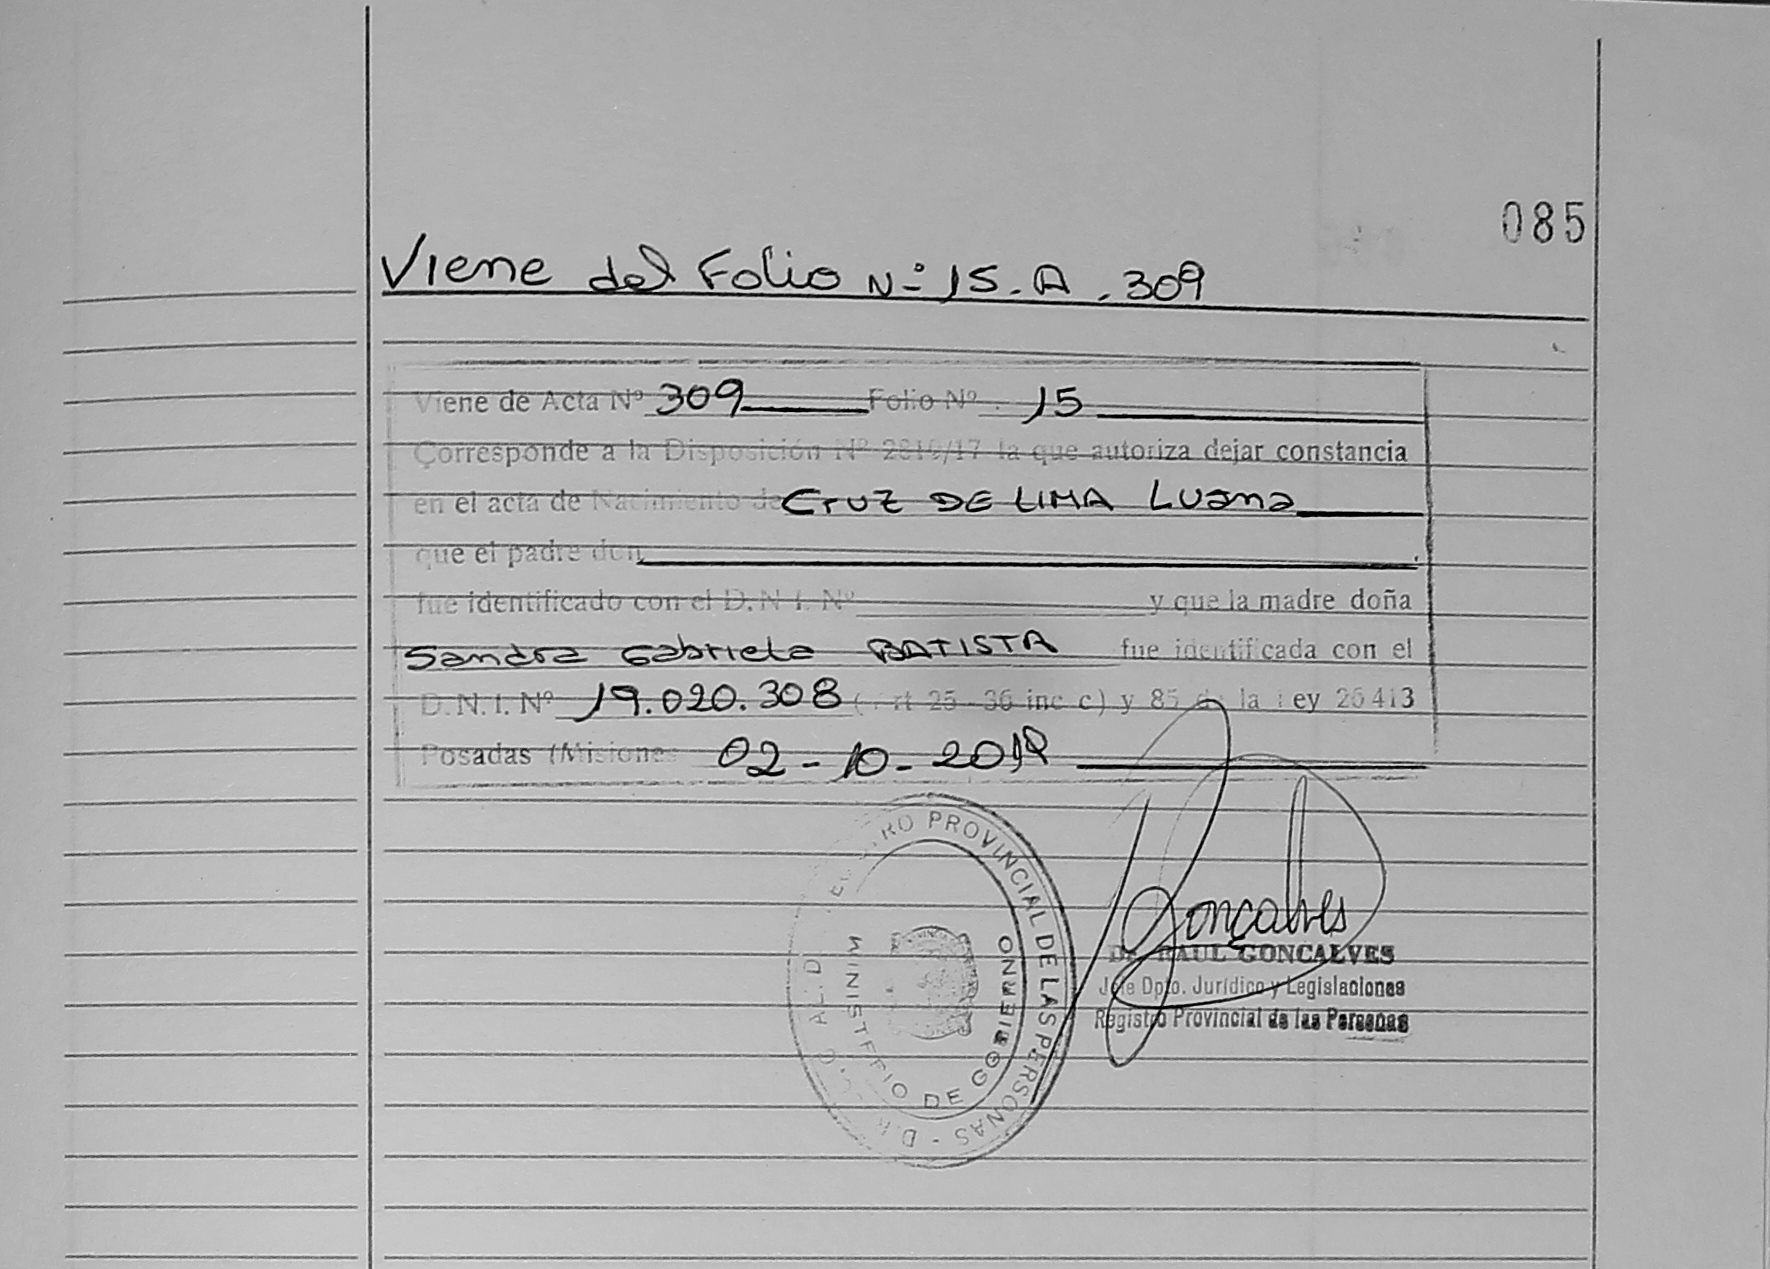 085
Viene del Folio Nº 15. A. 309
Viene de Acta Nº 309 Folio Nº 15
Corresponde a la Disposición Nº /17 la que autoriza dejar constancia
en el acta de Nacimiento de Cruz DE LIMA Luana
que el padre don
fue identificado con el D.N.I. Nº y que la madre doña
Sandra Gabriela BATISTA fue identificada con el
D.N.I. Nº 19.020.308 (Art 25 - 36 inc c) y 85 de la Ley 26413
Posadas (Misiones 02-10-
PROVINCIAL DE LAS PERSONAS
MINISTERIO DE GOBIERNO
Gonçalves
Dr. RAUL GONCALVES
Jefe Dpto. Jurídico y Legislaciones
Registro Provincial de las Personas